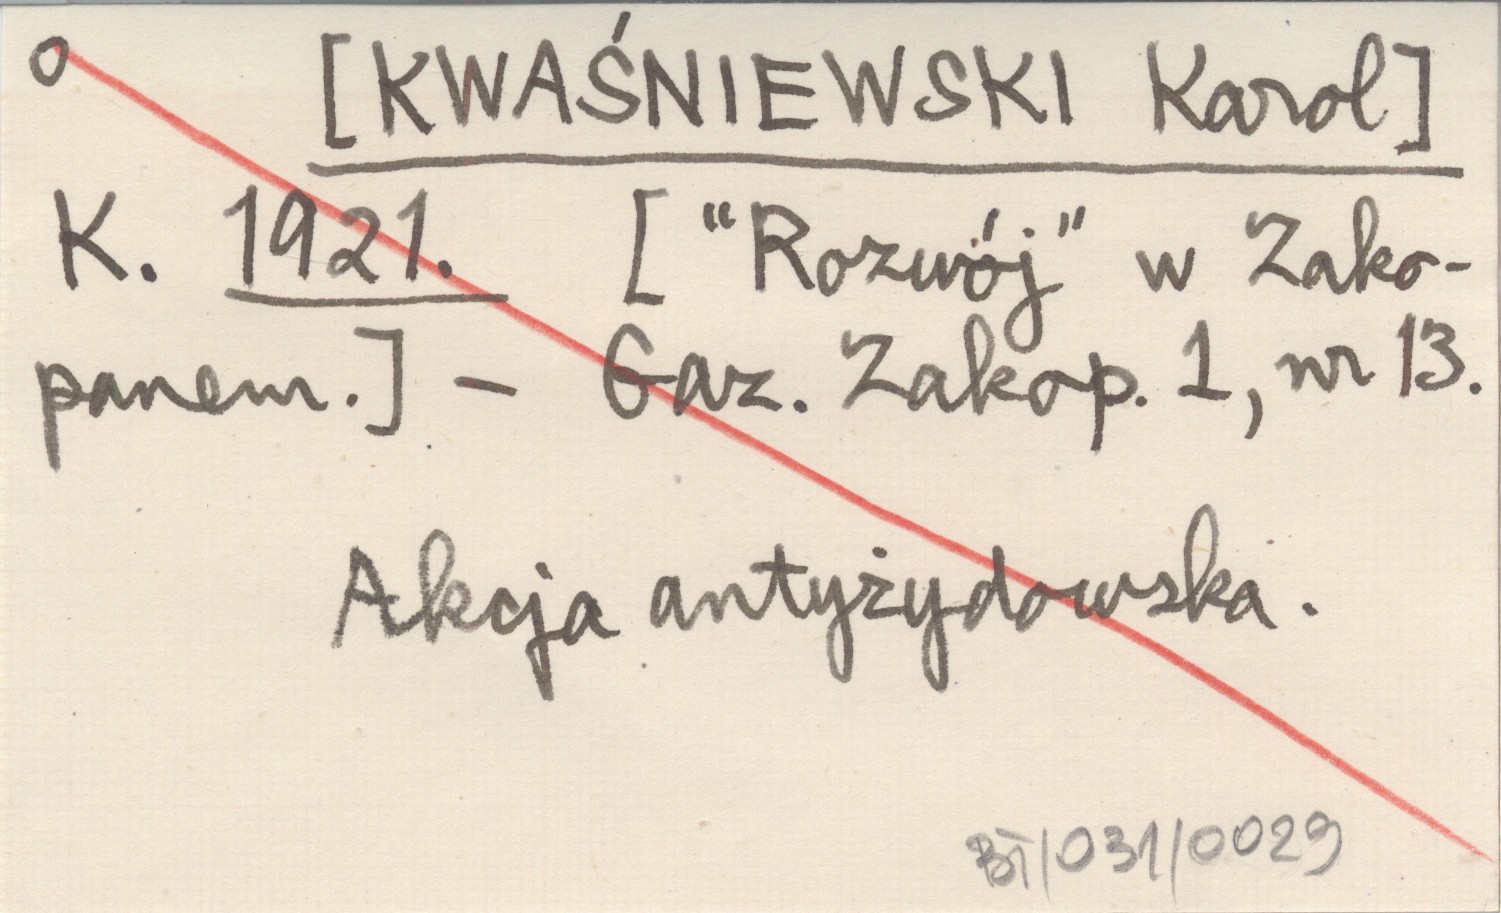 o [KWAŚNIEWSKI Karol]
K. 1921. [“Rozwój” w Zako-
panem.] – Gaz. Zakop. 1, nr 13.
Akcja antyżydowska.
BT/031/0029